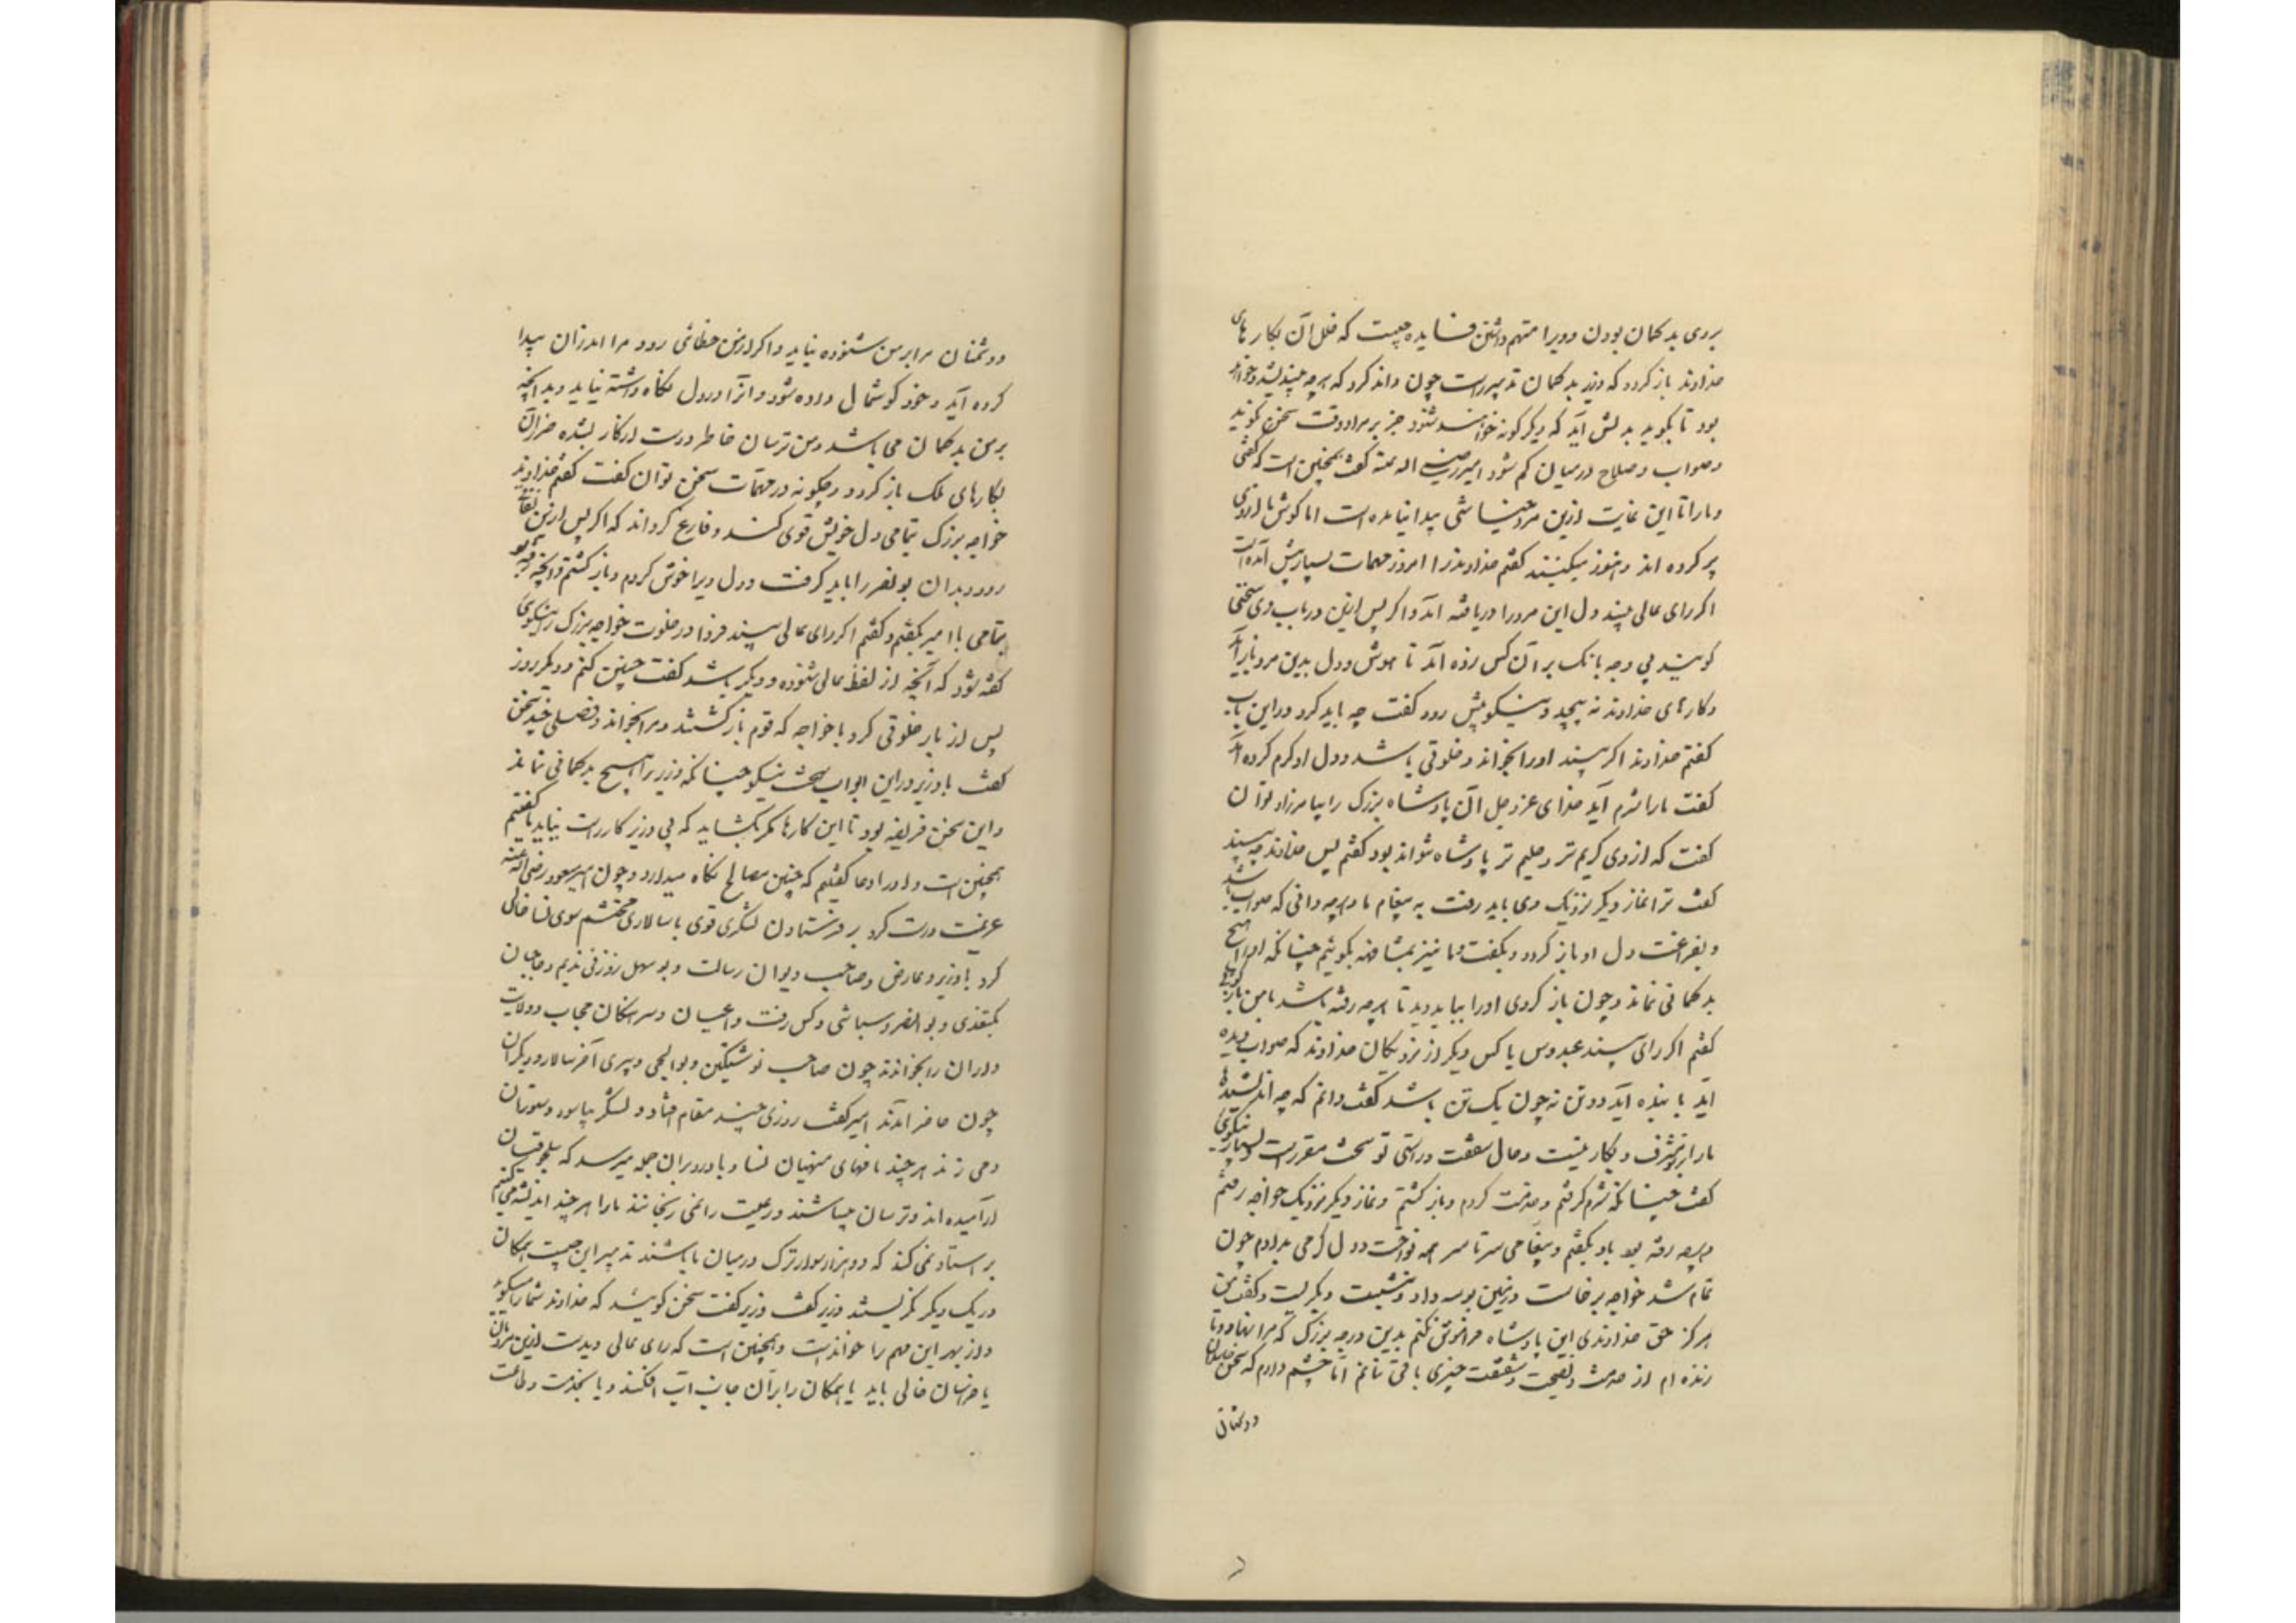 بروی بدکمان بودن و ویرا متهم داشتن فایده چیست که خلل آن بکارهای
خداوند باز کردد که وزیر بدکمان تدبیر راست چون داند کرد که هرچه بیندیشد و خواهد
بود تا بکوید بدلش آید که دیکر کونه خواهند شنود جز بر مراد وقت سخن نکوید
و صواب و صلاح درمیان کم شود امیر رضی اله عنه کفت همچنین است که کفتی
و ما را تا این غایت ازین مرد خیانتی پیدا نیامده است اما کوش ما از وی
پر کرده اند و هنوز میکنند کفتم خداوند را امروز مهمات بسیار پیش آمده است
اکر رای عالی بیند دل این مرد را دریافته آید و اکر پس ازین در باب وی سخنی
کویند بی وجه بانک بر آن کس زده آید تا هوش و دل بدین مرد باز آید
و کارهای خداوند نه پیچد و نیکو پیش رود کفت چه باید کرد در این باب
کفتم خداوند اکر بیند او را بخواند و خلوتی باشد و دل او کرم کرده آید
کفت ما را شرم آید خدای عز و جل آن پادشاه بزرک را بیامرزاد توان
کفت که از وی کریم تر و حلیم تر پادشاه نتواند بود کفتم پس خداوند چه بیند
کفت ترا نماز دیکر نزدیک وی باید رفت به پیغام ما و هرچه دانی که صواب باشد
و بفراغت دل او باز کردد و بکفت و ما نیز بمشافهه بکوئیم چنانکه او را هیچ
بدکمانی نماند و چون باز کردی او را بباید دید تا هرچه رفته باشد با من باز کوئی
کفتم اکر رای بیند عبدوس یا کس دیکر از نزدیکان خداوند که صواب دیده
آید با بنده آید دو تن نه چون یک تن باشد کفت دانم که چه اندیشیدهٔ
ما را بر تو مشرف بکار نیست و حال شفقت و راستی تو سخت مقررست و بسیار نیکوئی
کفت چنانکه شرم کرفتم و خدمت کردم و باز کشتم و نماز دیکر نزدیک خواجه رفتم
و هرچه رفته بود باو بکفتم و پیغامی سرتاسر همه نواخت و دل کرمی بدادم چون
تمام شد خواجه برخاست و زمین بوسه داد و بنشست و بکریست و کفت من
هرکز حق خداوندی این پادشاه فراموش نکنم بدین درجه بزرک که مرا نهاد و تا
زنده ام از خدمت و نصیحت و شفقت چیزی باقی نمانم اما چشم دارم که سخن حاسدان
و دشمنان
و دشمنان مرا بر من شنوده نیاید و اکر از من خطائی رود مرا اندران پیدا
کرده آید و خود کوشمال داده شود و آنرا در دل نکاه داشته نیاید و بدانچه
بر من بدکمان می باشد و من ترسان خاطر و دست از کار بشده ضرر آن
بکارهای ملک باز کردد و چکونه در مهمات سخن توان کفت کفتم خداوند
خواجه بزرک بتمامی دل خویش قوی کند و فارغ کرداند که اکر پس ازین نفاقی
رود بدان بونصر را باید کرفت و دل ویرا خوش کردم و باز کشتم و آنچه رفته بود
بتمامی با امیر بکفتم و کفتم اکر رای عالی بیند فردا در خلوت خواجه بزرک را نیکوئی
کفته شود که آنچه از لفظ عالی شنوده و دیکر باشد کفت چنین کنم و دیکر روز
پس از بار خلوتی کرد با خواجه که قوم باز کشتند و مرا بخواند و فصلی چند سخن
کفت با وزیر در این ابواب سخت نیکو چنانکه وزیر را هیچ بدکمانی نماند
و این سخن فریضه بود تا این کارها مکر بکشاید که بی وزیر کار راست نیاید ما کفتیم
همچنین است و او را دعا کفتیم که چنین مصالح نکاه میدارد و چون امیر مسعود رضی اله عنه
عزیمت درست کرد بر فرستادن لشکری قوی با سالاری محتشم سوی نسا خالی
کرد با وزیر و عارض و صاحب دیوان رسالت و بوسهل زوزنی ندیم و حاجبان
بکتغدی و بوالنضر و سباشی و کس رفت و اعیان و سرهنکان حجاب و ولایت
داران را بخواندند چون حاجب نوشتکین و بوالجی و پیری آخر سالار و دیکران
چون حاضر آمدند امیر کفت روزی چند مقام افتاد و لشکر بیاسود و ستوران
دمی زدند هر چند نامهای منهیان نسا و باورد بران جمله میرسد که سلجوقیان
آرامیده اند و ترسان میباشند و رعیت را نمی رنجانند ما را هر چند اندیشه می کنیم
بر استاد نمی کند که ده هزار سوار ترک در میان ما باشند تدبیر این چیست همکان
در یک دیکر نکریستند وزیر کفت وزیر کفت سخن کوئید که خداوند شما را میکوید
و از بهر این مهم را خوانده است و همچنین است که رای عالی دیدست ازین مردمان
یا خراسان خالی باید یا همکان را بر آن جانب آب افکند و یا بخدمت و طاعت